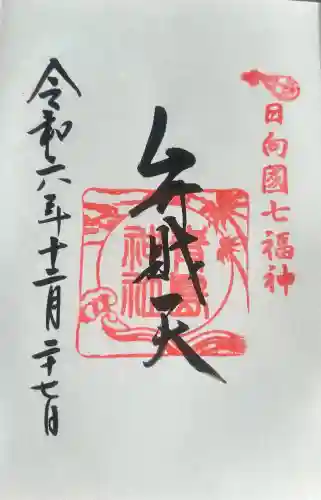 日向國七福神
弁財天
青島
神社
令和六年十二月二十七日